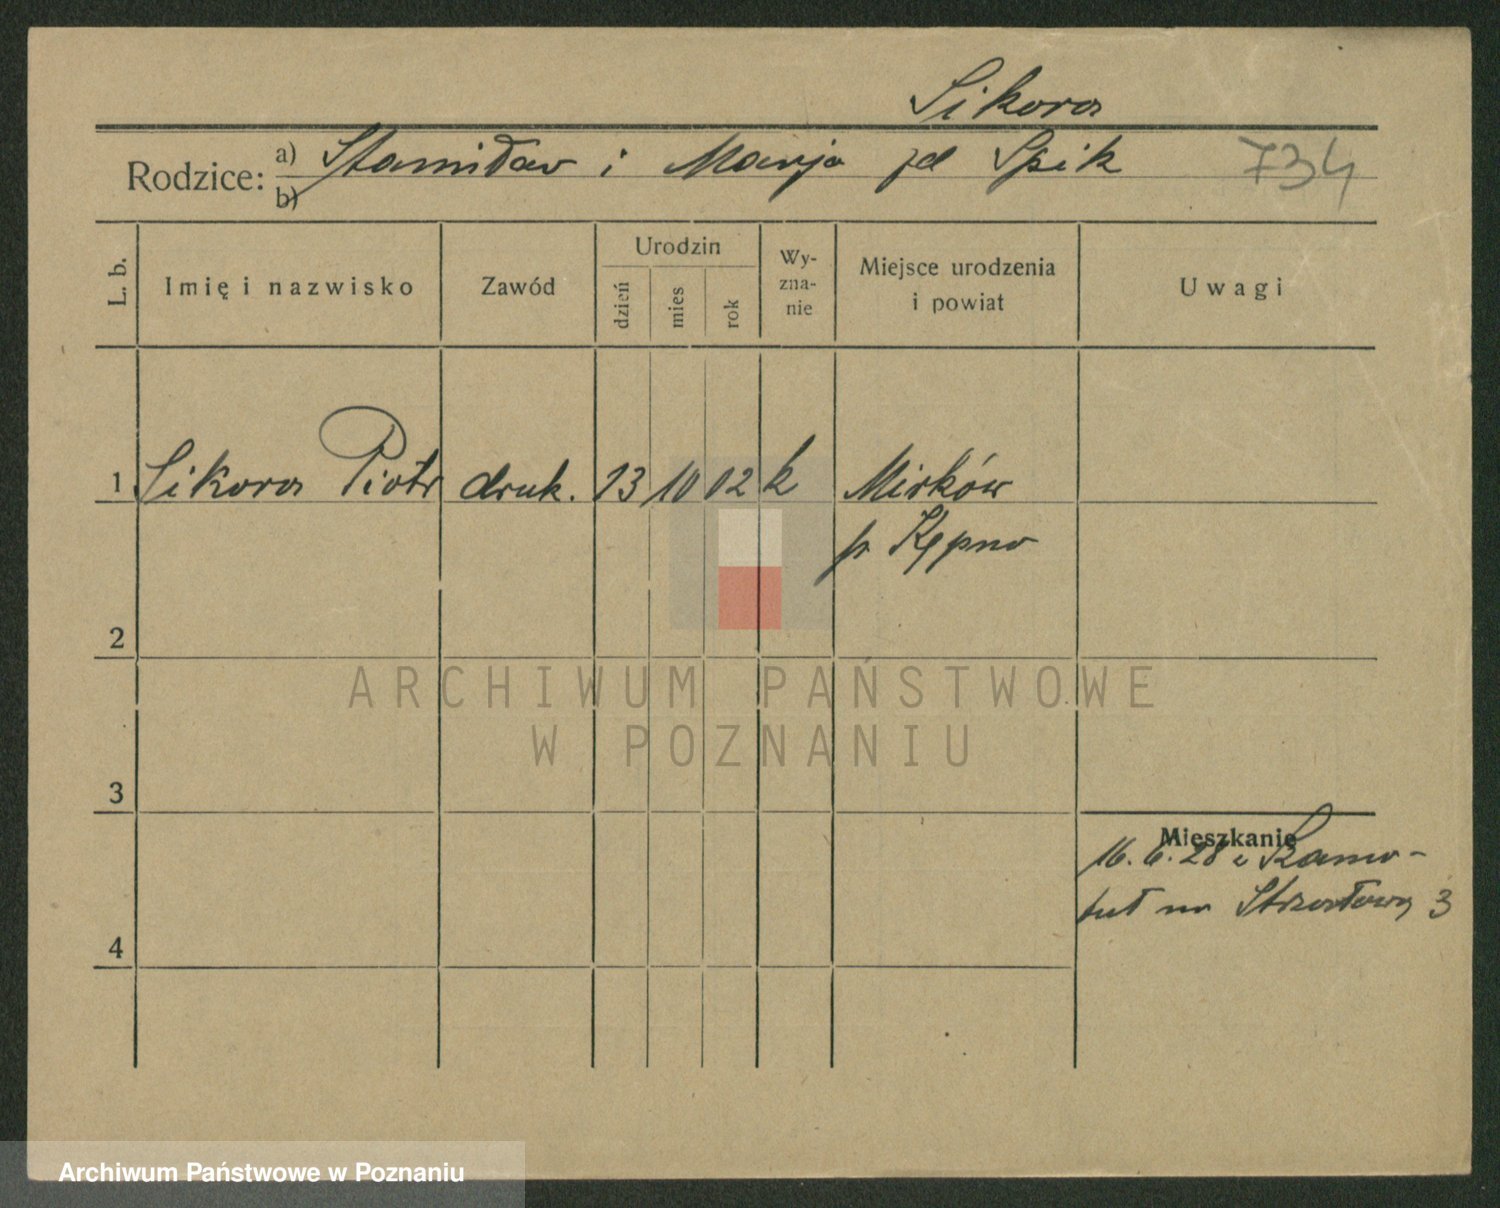 Sikora
Rodzice: a) Stanisław i Marja zd Spik 734
b)
L. b. Imię i nazwisko Zawód Urodzin dzień mies rok Wy-zna-nie Miejsce urodzenia i powiat Uwagi
1 Sikora Piotr druk. 13 10 02 k Mirków
p Kępno
2
ARCHIWUM PAŃSTWOWE
W POZNANIU
3
Mieszkanie
16.6.28 z Szamo-
tuł na Strzałową 3
4
Archiwum Państwowe w Poznaniu